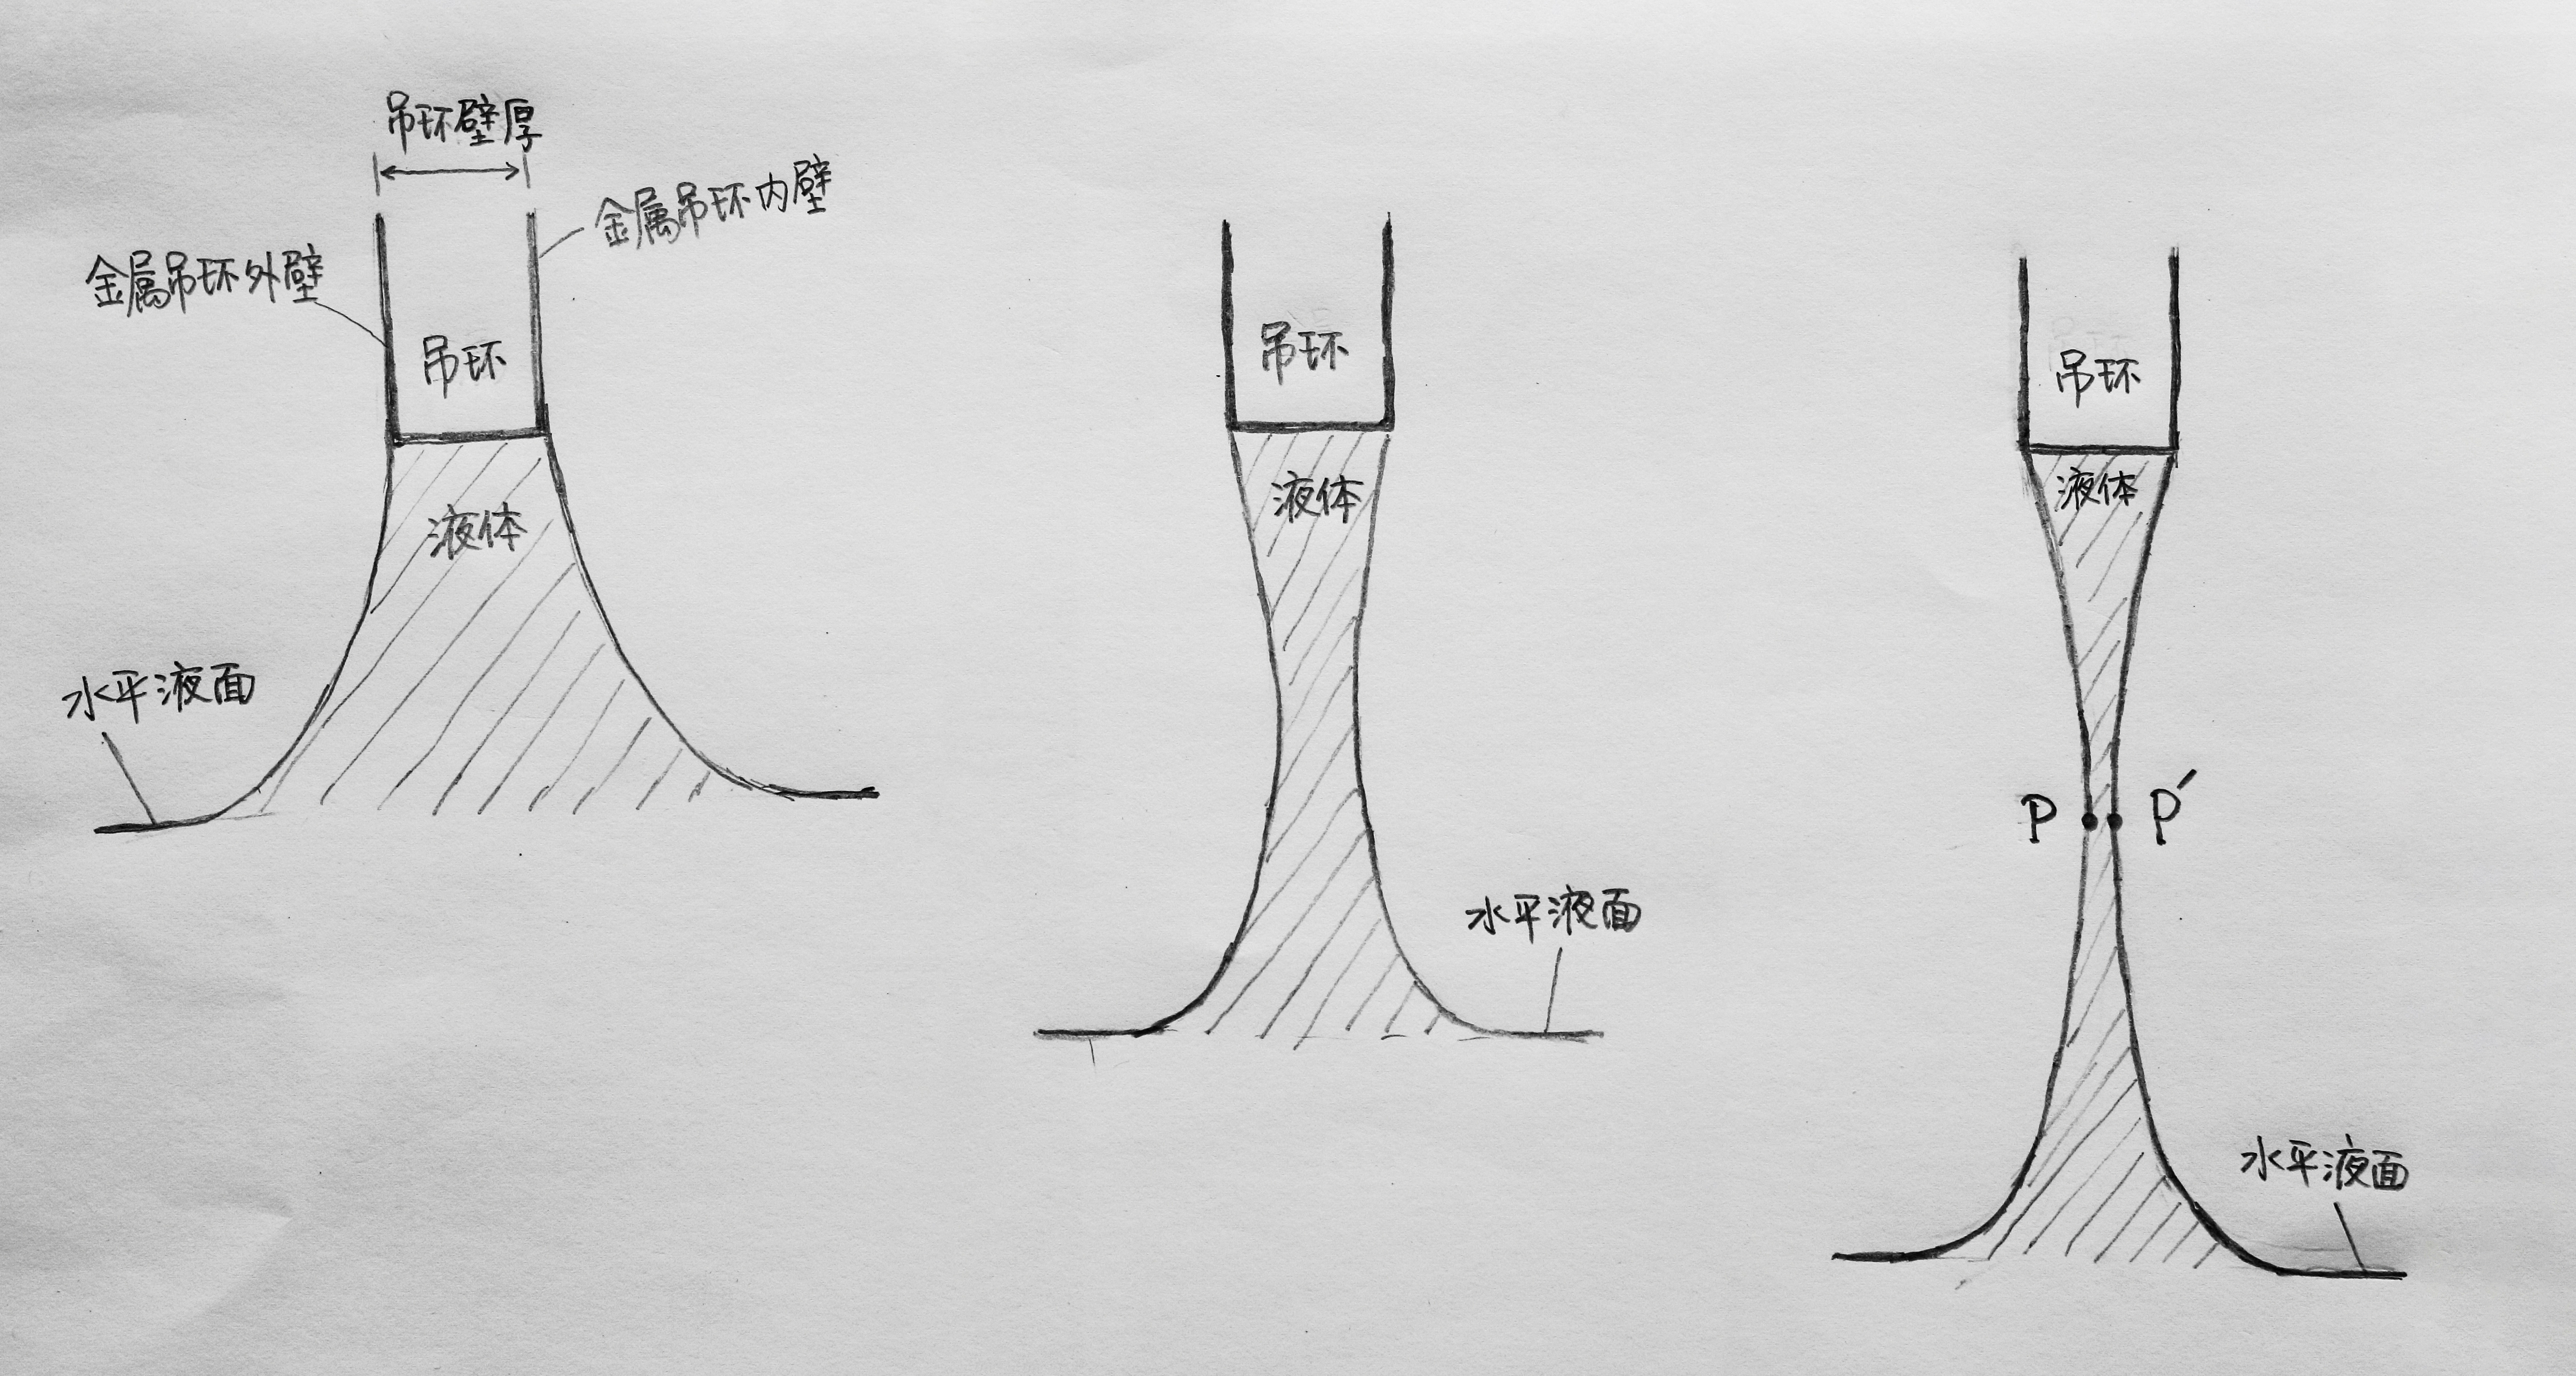 吊环壁厚
金属吊环内壁
金属吊环外壁
吊环
液体
水平液面
吊环
液体
水平液面
吊环
液体
P P′
水平液面